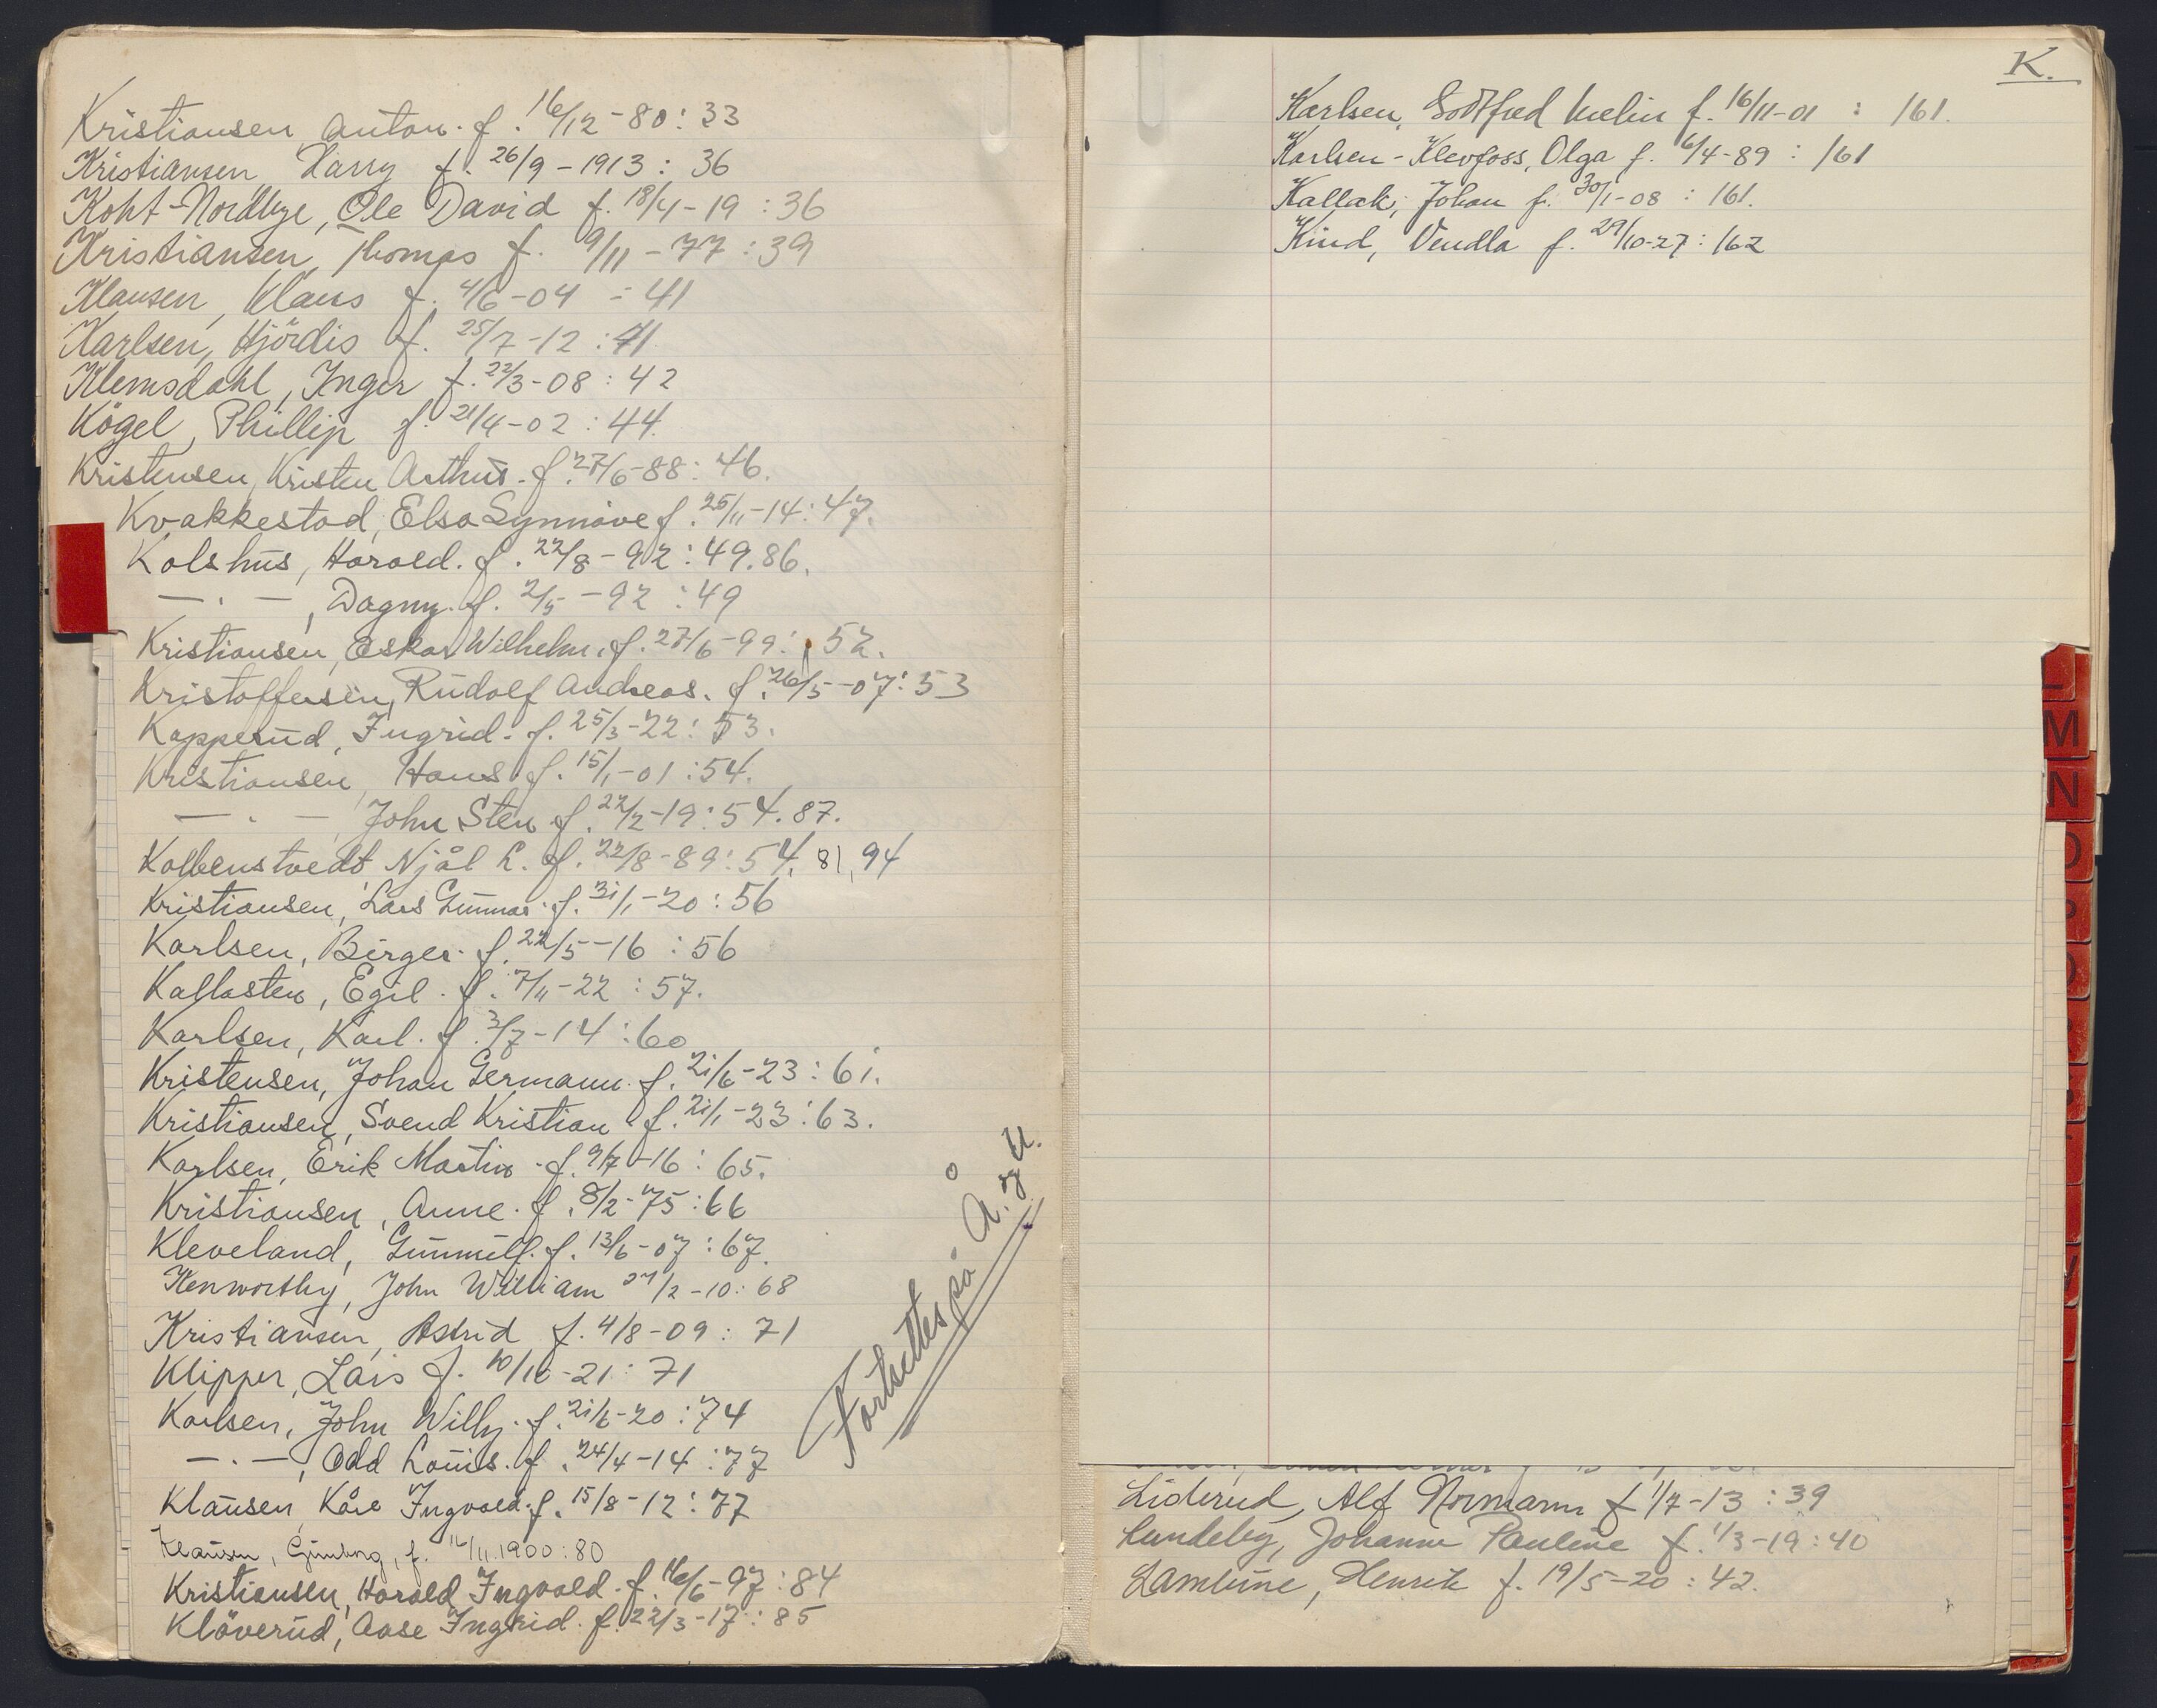 Kristiansen, Anton. f. 16/12-80: 33
Kristiansen, Harry f. 26/9-1913: 36
Koht-Nordbye, Ole David f. 18/4-19: 36
Kristiansen, Thomas f. 9/11-77: 39
Klausen, Klaus f. 4/6-04 : 41
Karlsen, Hjördis f. 25/7-12: 41
Klemsdahl, Inger f. 22/3-08: 42
Kögel, Phillip f. 21/4-02: 44.
Kristensen, Kristen Arthur. f. 27/6-88: 46.
Kvakkestad, Elsa Synnöve f. 25/11-14: 47.
Kolshus, Harald. f. 22/8-92: 49.86.
— . —, Dagny. f. 2/5-92: 49
Kristiansen, Oskar Wilhelm. f. 27/6-99: 52.
Kristoffersen, Rudolf Andreas. f. 26/5-07: 53
Kopperud, Ingrid. f. 25/3-22: 53.
Kristiansen, Hans f. 15/1-01: 54.
— . —, John Sten f. 22/2-19: 54. 87.
Kolbenstvedt, Njål L. f. 22/8-89: 54, 81, 94
Kristiansen, Lars Gunnar. f. 31/1-20: 56
Karlsen, Birger. f. 22/5-16: 56
Kallasten, Egil. f. 7/11-22: 57.
Karlsen, Karl. f. 3/7-14: 60
Kristensen, Johan Germann. f. 21/6-23: 61.
Kristiansen, Svend Kristian f. 21/1-23: 63.
Karlsen, Erik Martin. f. 9/7-16: 65.
Kristiansen, Anne. f. 8/2-75: 66
Kleveland, Gunnulf. f. 13/6-07: 67.
Kenworthy, John William /2-10: 68
Kristiansen, Astrid f. 4/8-09: 71
Klipper, Lais f. 10/10-21: 71
Karlsen, John Willy. f. 21/6-20: 74
— . —, Odd Louis. f. 24/4-14: 77
Klausen, Kåre Ingvald. f. 15/8-12: 77
Klausen, Gunborg, f. /11.1900: 80
Kristiansen, Harald Ingvald. f. 16/6-97: 84
Klöverud, Aase Ingrid. f. 22/3-17: 85
Fortsettes på Å. og U.
K.
Karlsen, Gottfred Melin f. 16/11-01 : 161.
Karlsen-Klevfoss, Olga f. 6/4-89 : 161
Kallak, Johan f. 30/1-08 : 161.
Kind, Vendla f. 29/10-27: 162
Liderud, Alf Normann f 1/7-13 : 39
Lundeby, Johanne Pauline f. 1/3-19: 40
Lamline, Henrik f. 19/5-20: 42.
L
M
N
O
P